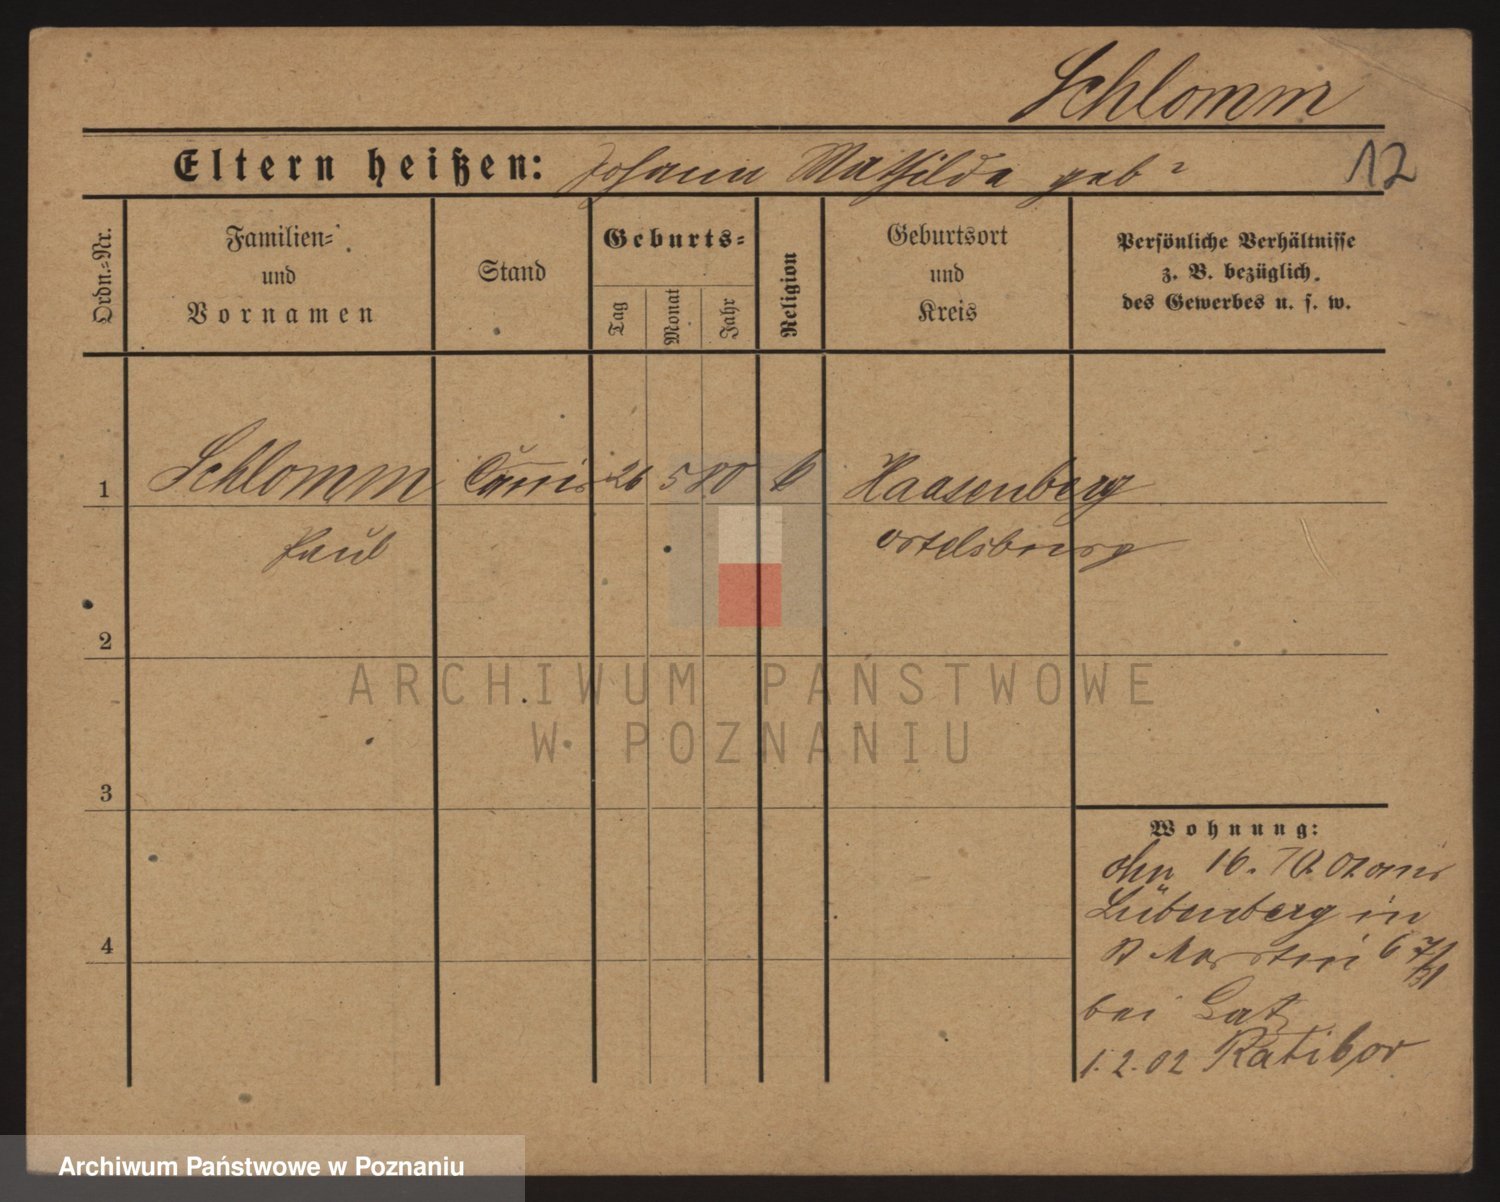 Schlomm
Eltern heißen: Johann Mathilda geb ?
12
Ordn.=Nr.
Familien=
und
Vornamen
Stand
Geburts=
Tag
Monat
Jahr
Religion
Geburtsort
und
Kreis
Persönliche Verhältnisse
z. B. bezüglich
des Gewerbes u. s. w.
1
Schlomm
26 5 80
Haasenberg
Paul
Ortelsburg
2
ARCHIWUM PAŃSTWOWE
W POZNANIU
3
Wohnung:
16.
in
4
St Martin 6
bei
1.2.02 Ratibor
Archiwum Państwowe w Poznaniu